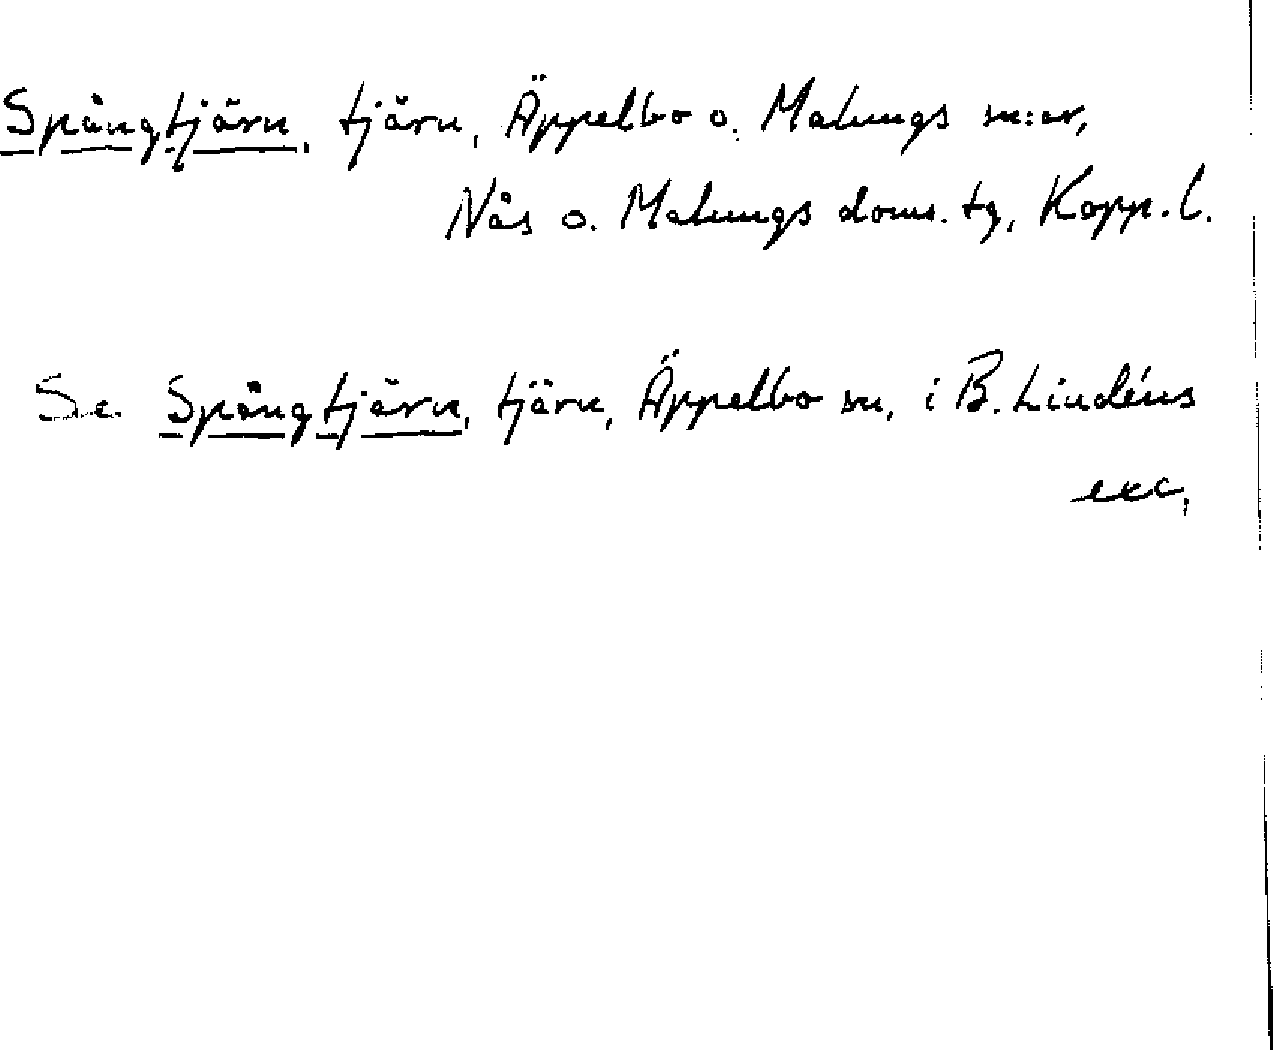 Spångtjärn, tjärn, Äppelbo o. Malungs sn:ar,
Nås o. Malungs doms. tg, Kopp. l.
Se Spångtjärn, tjärn, Äppelbo sn, i B. Lindéns
exc,